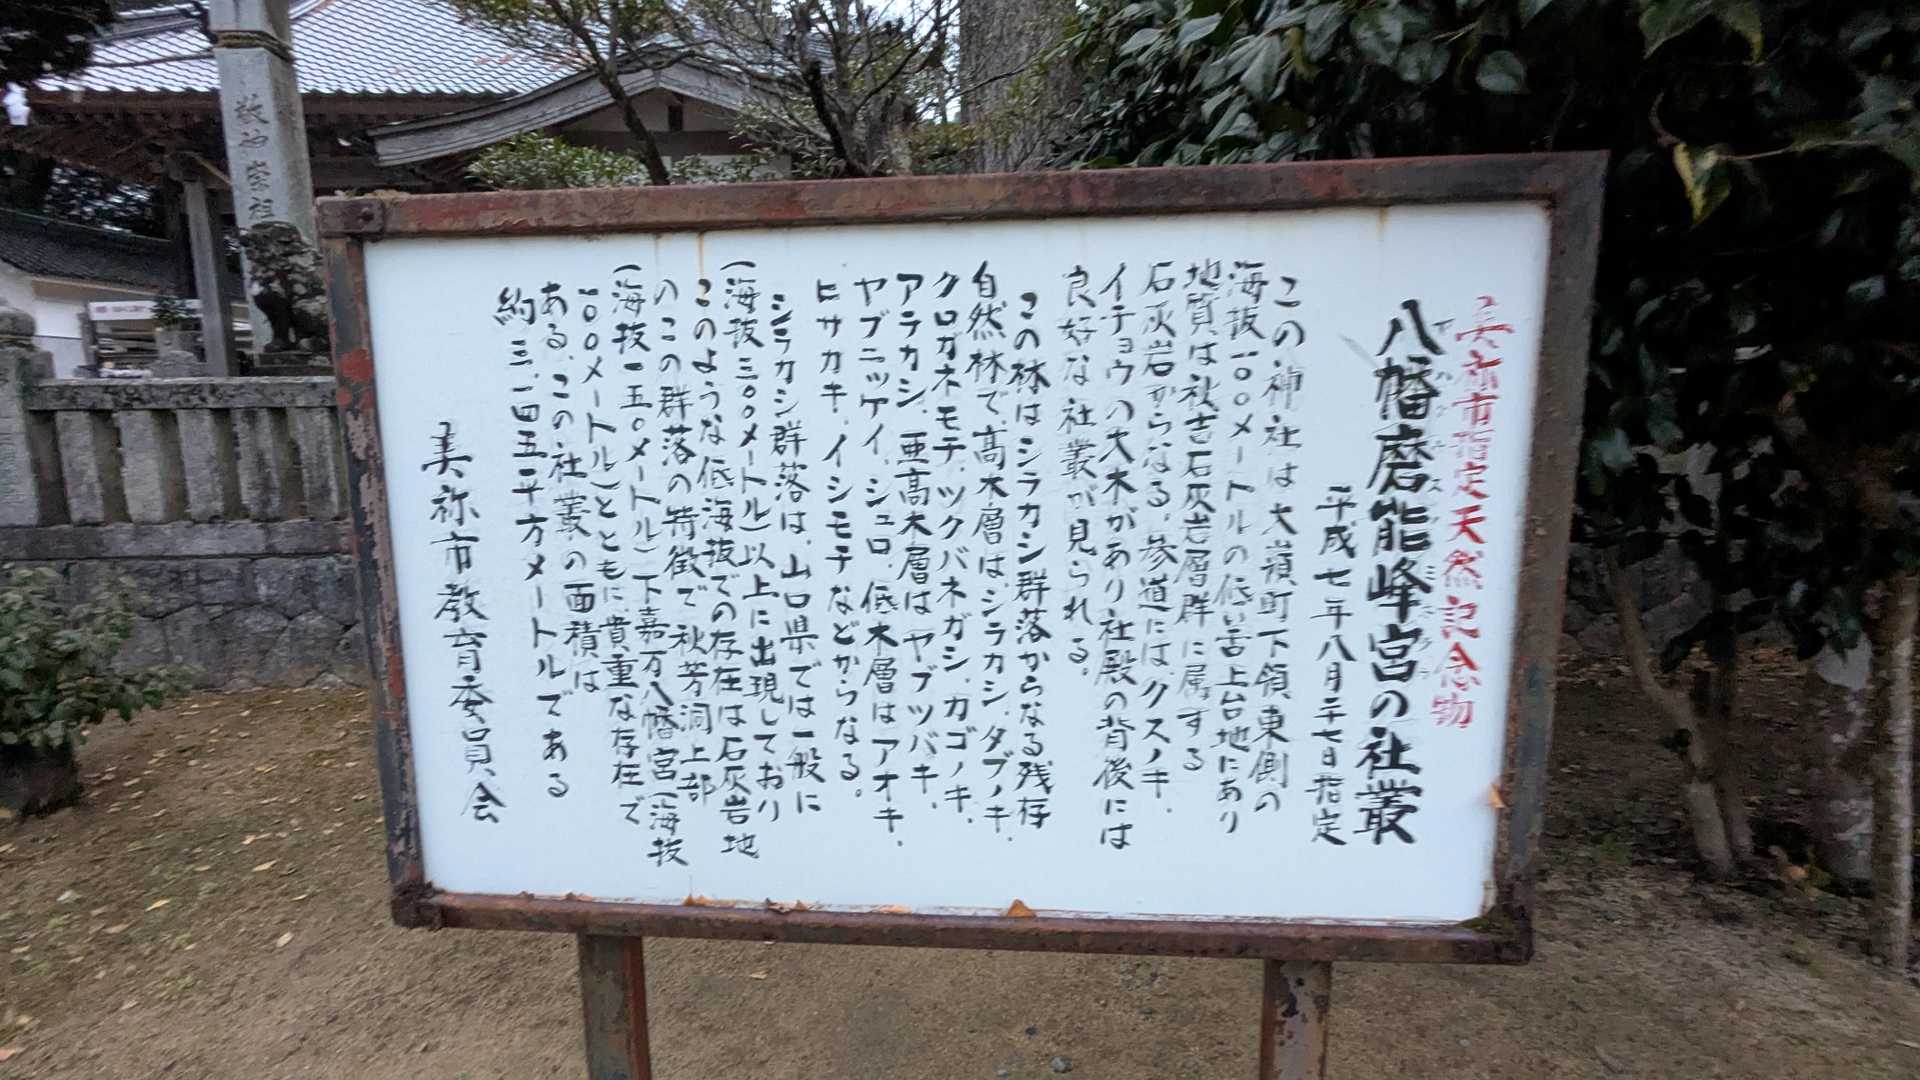 美祢市指定天然記念物
八幡磨能峰宮の社叢
平成七年八月二十七日指定
この神社は大嶺町下領東側の
海抜一〇〇メートルの低い舌上台地にあり
地質は秋吉石灰岩層群に属する
石灰岩からなる。参道にはクスノキ、
イチョウの大木があり社殿の背後には
良好な社叢が見られる。
この林はシラカシ群落からなる残存
自然林で、高木層は、シラカシ、タブノキ、
クロガネモチ、ツクバネガシ、カゴノキ、
アラカシ、亜高木層はヤブツバキ、
ヤブニッケイ、シュロ、低木層はアオキ、
ヒサカキ、イシモチなどからなる。
シラカシ群落は、山口県では一般に
(海抜三〇〇メートル)以上に出現しており
このような低海抜での存在は石灰岩地
のこの群落の特徴で秋芳洞上部
(海抜一五〇メートル)下嘉万八幡宮(海抜
一〇〇メートル)とともに、貴重な存在で
ある、この社叢の面積は
約三、一四五平方メートルである
美祢市教育委員会
敬神崇祖